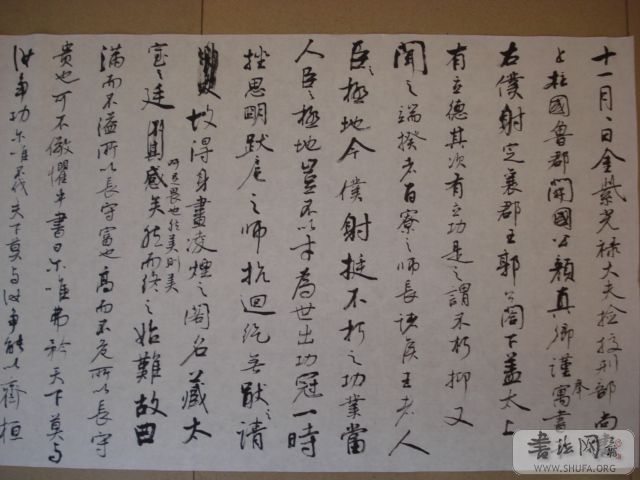 十一月日金紫光禄大夫检校刑部尚書
上柱國鲁郡開國公顏真卿謹奉寓書
右僕射定襄郡王郭公閤下盖太上
有立德其次有立功是之謂不朽抑又
聞之端揆者百寮之師長诸侯王者人
臣之極地今僕射挺不朽之功業當
人臣極地豈不以才為世出功冠一時
挫思明跋扈之師抗迴纥無厭之請
故得身畫凌煙之阁名藏太
室之廷吁足畏也然美則美
矣然而终之始難故曰
滿而不溢所以長守富也高而不危所以長守
贵也可不儆懼乎書曰尔唯弗矜天下莫与
汝争功尔唯不伐天下莫与汝争能以齊桓
書法网
WWW.SHUFA.ORG